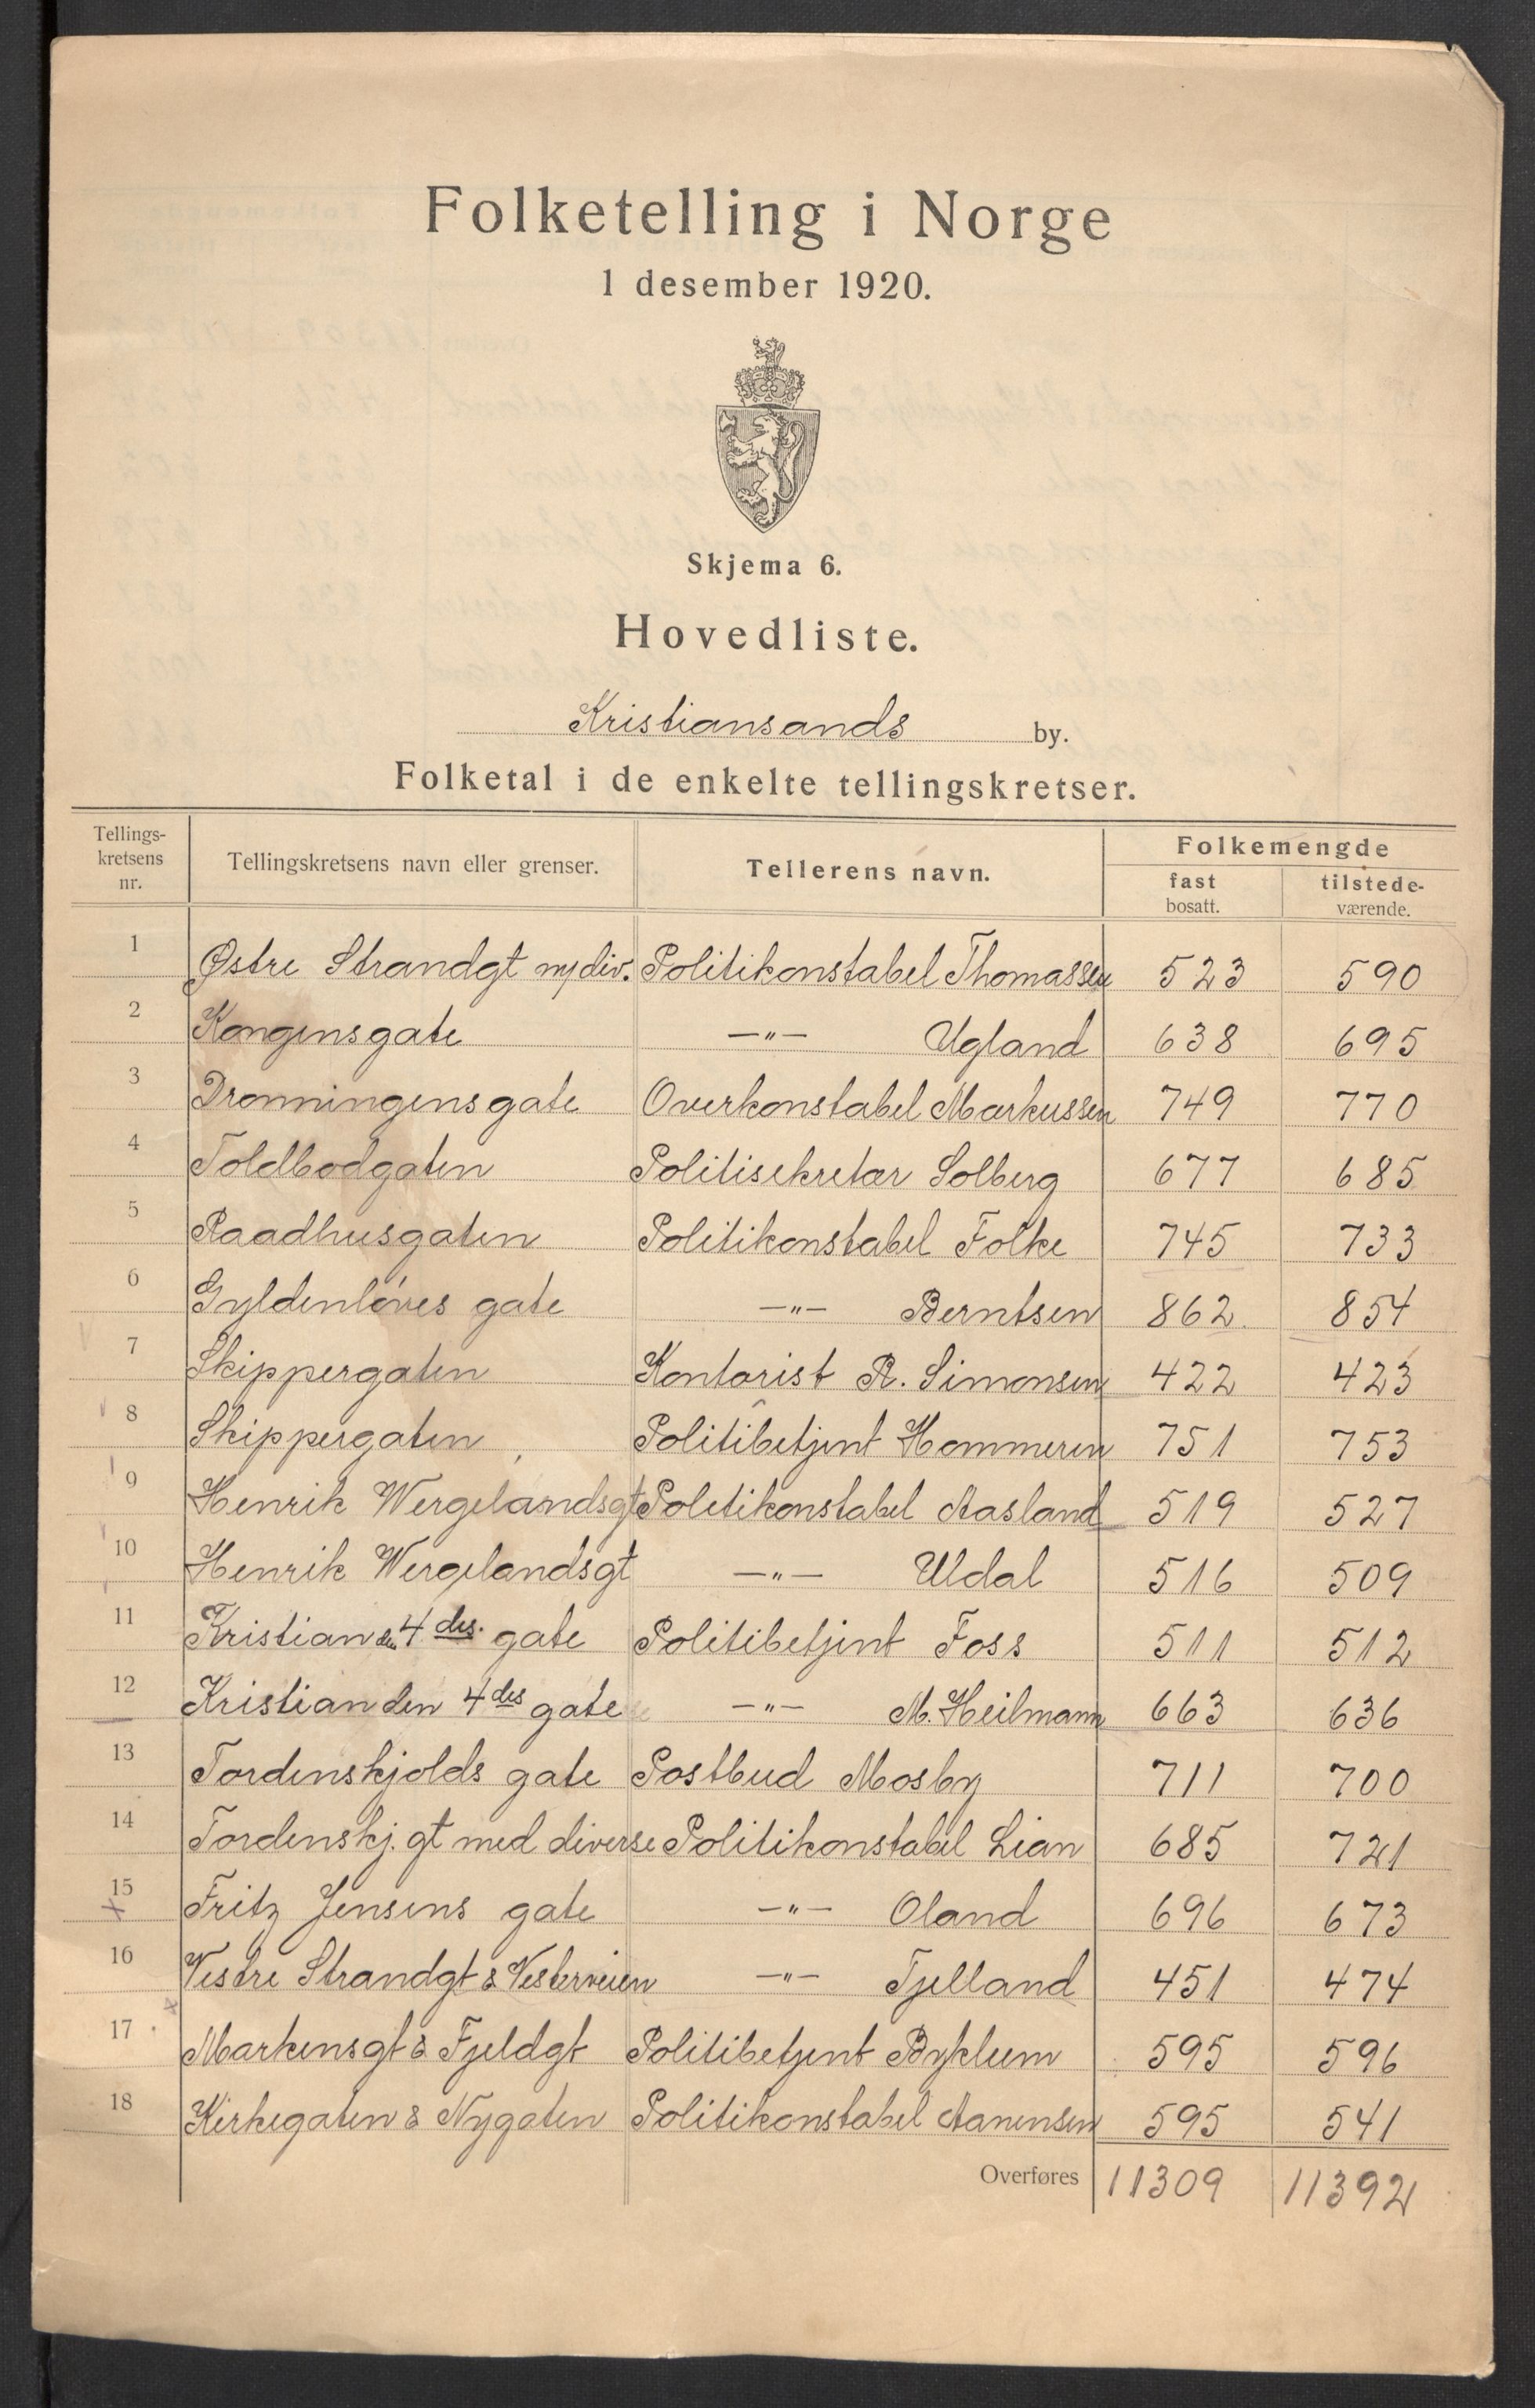 Folketelling i Norge
1 desember 1920.
Skjema 6.
Hovedliste.
Kristiansands by.
Folketal i de enkelte tellingskretser.
Tellings-kretsens nr. Tellingskretsens navn eller grenser. Tellerens navn. Folkemengde fast bosatt. tilstede-værende.
1 Østre Strandgt m/div. Politikonstabel Thomassen 523 590
2 Kongensgate —"— Ugland 638 695
3 Dronningensgate Overkonstabel Markussen 749 770
4 Toldbodgaten Politisekretær Solberg 677 685
5 Raadhusgaten Politikonstabel Folke 745 733
6 Gyldenløves gate —"— Berntsen 862 854
7 Skippergaten Kontorist R. Simonsen 422 423
8 Skippergaten Politibetjent Hommeren 751 753
9 Henrik Wergelandsgt Politikonstabel Aasland 519 527
10 Henrik Wergelandsgt —"— Udal 516 509
11 Kristian den 4 des. gate Politibetjent Foss 511 512
12 Kristian den 4 des gate —"— M. Heilmann 663 636
13 Tordenskjolds gate Postbud Mosby 711 700
14 Tordenskj. gt med diverse Politikonstabel Lian 685 721
15 Fritz Jensens gate —"— Oland 696 673
16 Vestre Strandgt & Vesterveien —"— Tjelland 451 474
17 Markensgt & Fjeldgt Politibetjent Byklum 595 596
18 Kirkegaten & Nygaten Politikonstabel Aanensen 595 541
Overføres 11309 11392